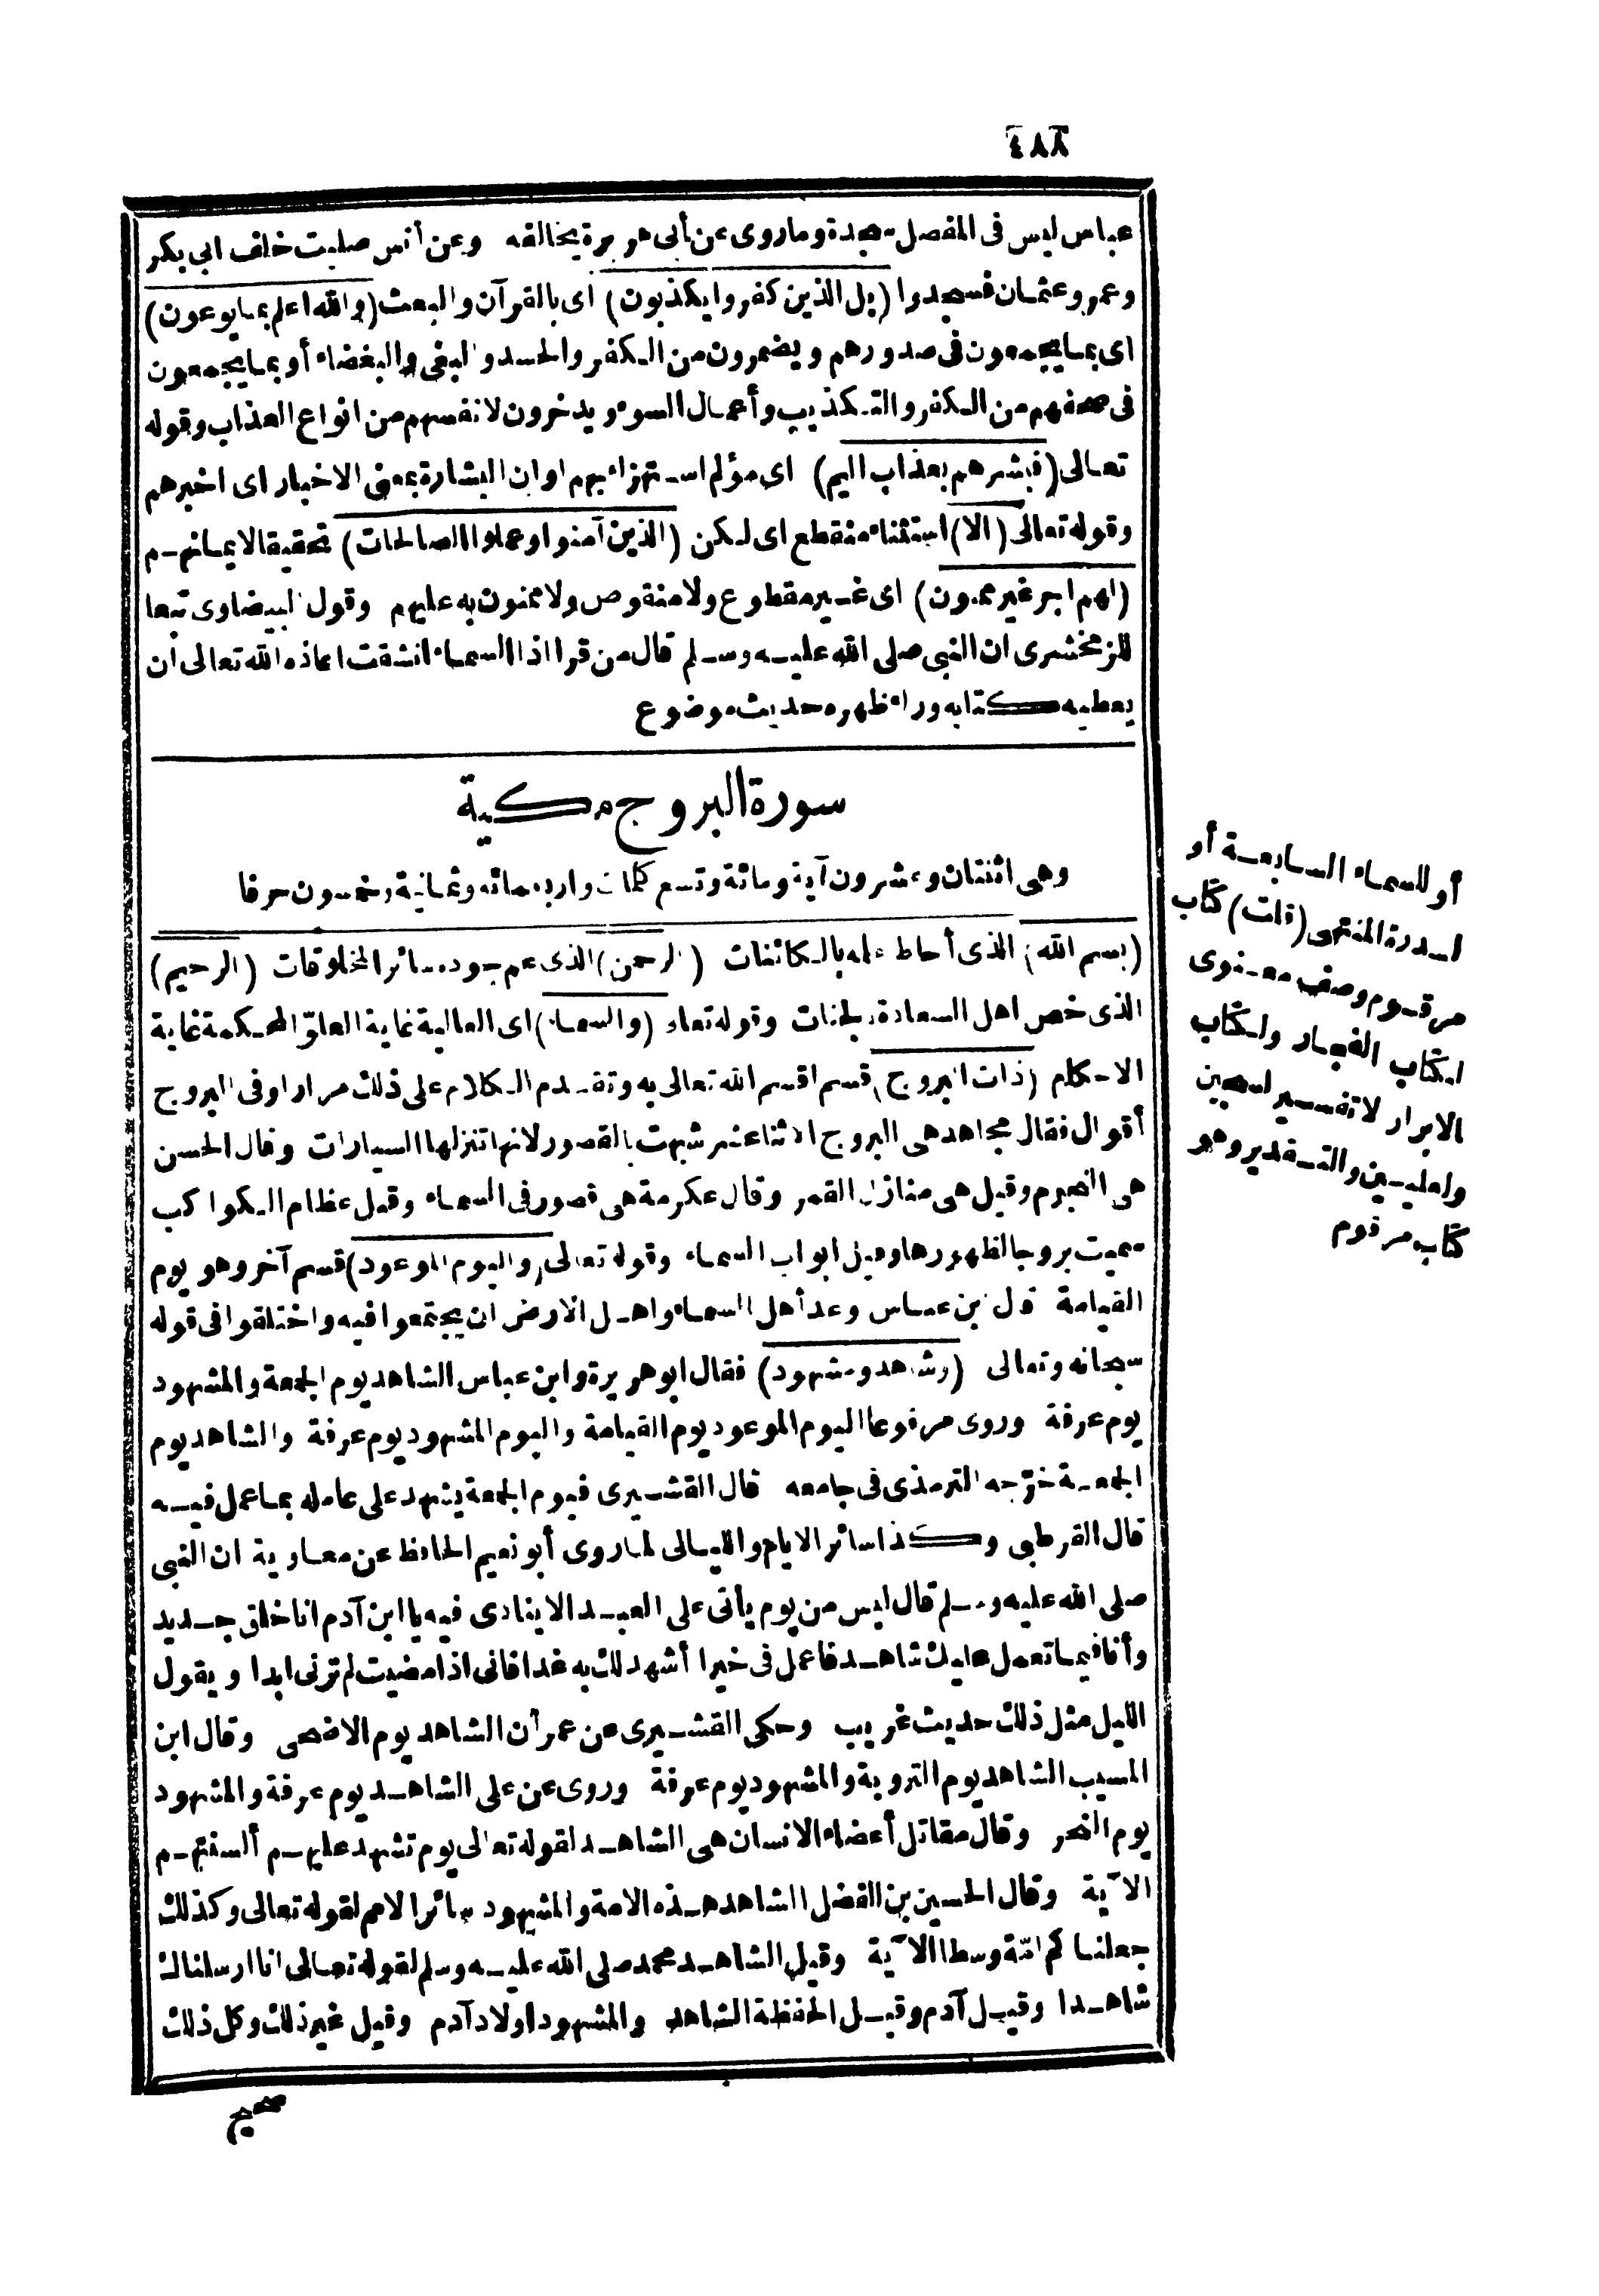 ٤٨٨
عباس ليس فى المفصل سجدة وما روى عن أبى هريرة يخالفه وعن أنس صليت خلف ابى بكر
وعمر وعثمان فسجدوا (بل الذين كفروا يكذبون) اى بالقرآن والبعث (والله اعلم بما يوعون)
اى بما يجمعون فى صدورهم ويضمرون من الكفر والحسد والبغى والبغضاء أو بما يجمعون
فى صحفهم من الكفر والتكذيب وأعمال السوء ويدخرون لانفسهم من انواع العذاب وقوله
تعالى (فبشرهم بعذاب اليم) اى مؤلم استهزاء بهم او ان البشارة بمعنى الاخبار اى اخبرهم
وقوله تعالى (الا) استثناء منقطع اى لكن (الذين آمنوا وعملوا الصالحات) تحقيقا لايمانهم
(لهم اجر غير ممنون) اى غير مقطوع ولا منقوص ولا ممنون به عليهم وقول البيضاوى تبعا
للزمخشرى ان النبى صلى الله عليه وسلم قال من قرا اذا السماء انشقت اعاذه الله تعالى أن
يعطيه كتابه وراء ظهره حديث موضوع
سورة البروج مكية
وهى اثنتان وعشرون آية ومائة وتسع كلمات واربعمائه وثمانية وخمسون حرفا
(بسم الله) الذى أحاط علمه بالكائنات (الرحمن) الذى عم جوده سائر المخلوقات (الرحيم)
الذى خص اهل السعادة بالجنات وقوله تعالى (والسماء) اى العالية غاية العلوّ المحكمة غاية
الاحكام (ذات البروج) قسم اقسم الله تعالى به وتقدم الكلام على ذلك مرارا وفى البروج
أقوال فقال مجاهد هى البروج الاثنا عشر شبهت بالقصور لانها تنزلها السيارات وقال الحسن
هى النجوم وقيل هى منازل القمر وقال عكرمة هى قصور فى السماء وقيل عظام الكواكب
سميت بروجا لظهورها وقيل ابواب السماء وقوله تعالى (واليوم الموعود) قسم آخر وهو يوم
القيامة قال ابن عباس وعد أهل السماء واهل الارض ان يجتمعوا فيه واختلفوا فى قوله
سبحانه وتعالى (وشاهد ومشهود) فقال ابو هريرة وابن عباس الشاهد يوم الجمعة والمشهود
يوم عرفة وروى مرفوعا اليوم الموعود يوم القيامة واليوم المشهود يوم عرفة والشاهد يوم
الجمعة خرّجه الترمذى فى جامعه قال القشيرى فيوم الجمعة يشهد على عامله بما عمل فيه
قال القرطبى وكذا سائر الايام والليالى لما روى أبو نعيم الحافظ عن معاوية ان النبى
صلى الله عليه وسلم قال ليس من يوم يأتى على العبد الا ينادى فيه يا ابن آدم انا خلق جديد
وأنا فيما تعمل عليك شاهد فاعمل فى خيرا أشهد لك به غدا فانى اذا مضيت لم ترنى ابدا ويقول
الليل مثل ذلك حديث غريب وحكى القشيرى عن عمر أن الشاهد يوم الاضحى وقال ابن
المسيب الشاهد يوم التروية والمشهود يوم عرفة وروى عن على الشاهد يوم عرفة والمشهود
يوم النحر وقال مقاتل أعضاء الانسان هى الشاهد لقوله تعالى يوم تشهد عليهم ألسنتهم
الآية وقال الحسين بن الفضل الشاهد هذه الامة والمشهود سائر الامم لقوله تعالى وكذلك
جعلناكم امّة وسطا الآية وقيل الشاهد محمد صلى الله عليه وسلم لقوله تعالى انا ارسلناك
شاهدا وقيل آدم وقيل الحفظة الشاهد والمشهود اولاد آدم وقيل غير ذلك وكل ذلك
صحيح
أو للسماء السابعة أو
لسدرة المنتهى (قلت) كتاب
مرقوم وصف معنوى
لكتاب الفجار ولكتاب
الابرار لا تفسير لسجين
ولعليين والتقدير وهو
كتاب مرقوم